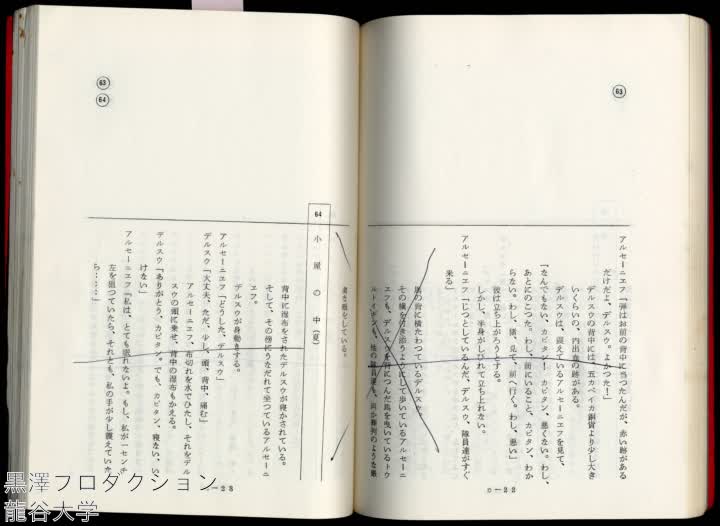 63
アルセーニエフ「弾はお前の背中に当つたんだが、赤い跡がある
だけだよ、デルスウ。よかつた！」
デルスウの背中には、五カペイカ銅貨より少し大き
いくらいの、内出血の跡がある。
デルスウは、震えているアルセーニエフを見て、
「なんでもない、カピタン！ カピタン、悪くない。わし、
あとにのこつた。わし、前にいること、カピタン、わか
らない。わし、猪、見て、前へ行く。わし、悪い」
彼は立ち上がろうとする。
しかし、半身がしびれて立ち上れない。
アルセーニエフ「じつとしているんだ、デルスウ、隊員達がすぐ
来る」
馬の背に横たわつているデルスウ。
その横を付き添うようにして歩いているアルセーニ
エフも、デルスウを背につんだ馬を曳いているトウ
ルトイギンも、他の隊員達も、
C－22
63
64
64 小屋の中（夏）
背中に湿布をされたデルスウが寝かされている。
そして、その傍にうなだれて坐つているアルセーニ
エフ。
デルスウが身動きする。
アルセーニエフ「どうした、デルスウ」
デルスウ「大丈夫、ただ、少し、頭、背中、痛む」
アルセーニエフ、布切れを水でひたし、それをデル
スウの頭に乗せ、背中の湿布もかえる。
デルスウ「ありがとう、カピタン。でも、カピタン、寝ない、い
けない」
アルセーニエフ「私は、とても眠れないよ。もし、私が一センチ
左を狙つていたら、それとも、私の手が少し震えていた
ら……」
－23
黒澤プロダクション
龍谷大学